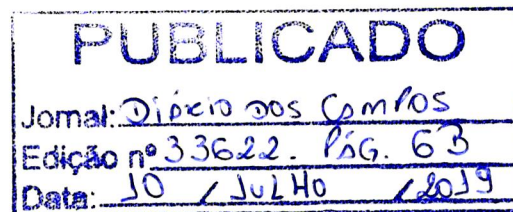 PUBLICADO
Jornal: Diário dos Campos
Edição nº 33622. PÁG. 6B
Data: 10 / JULHO / 2019